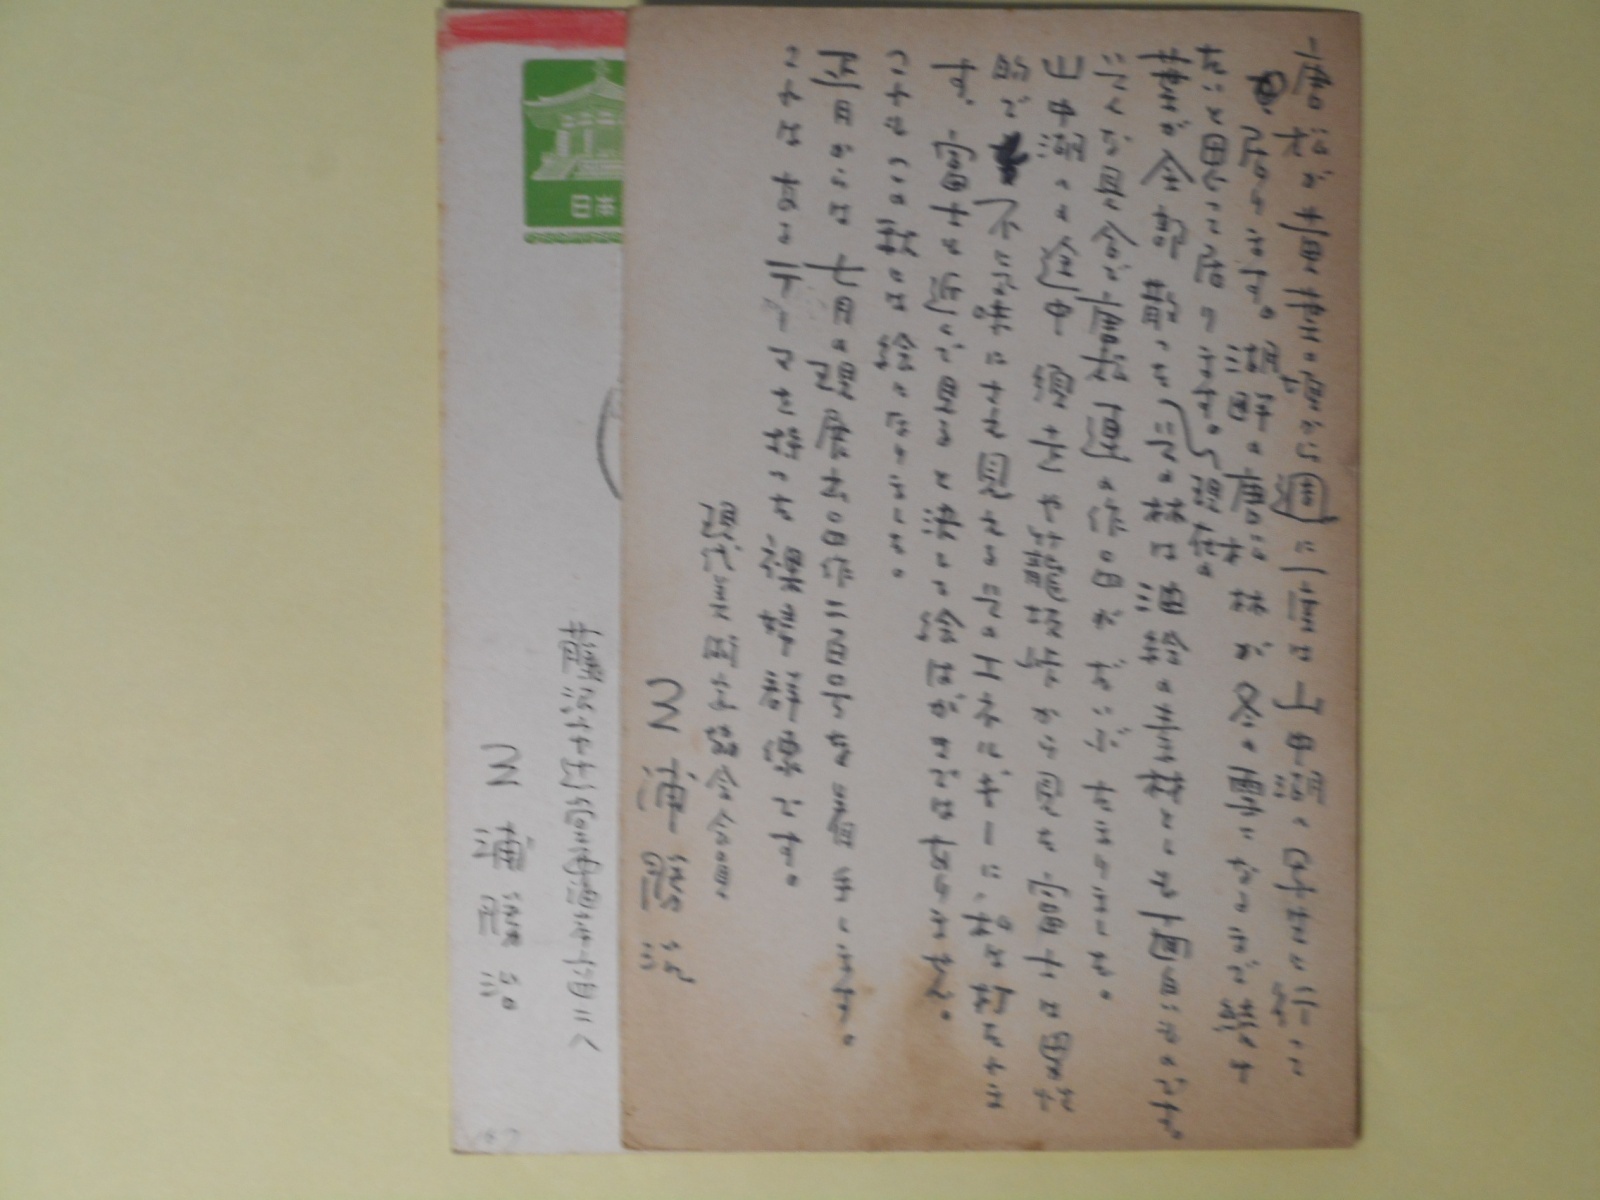 唐松が黄葉の頃から週に一度は山中湖へ写生に行って
居ります。湖畔の唐松林が冬の雪になるまで続け
たいと思って居ります。現在の
葉が全部散った 林は油絵の素材としても面白いものです。
こんな具合で唐松連の作品がだいぶたまりました。
山中湖への途中須走や籠坂峠から見た富士は男性
的で不気味にさえ見える そのエネルギーに、私は打たれま
す。富士を近くで見ると決して絵はがきではありません。
これもこの秋には絵になりました。
正月からは七月の現展出品作二百号を着手します。
これはあるテーマを持った裸婦群像です。
現代美術家協会会員
三浦勝治
日本
藤沢市辻堂
三浦勝治